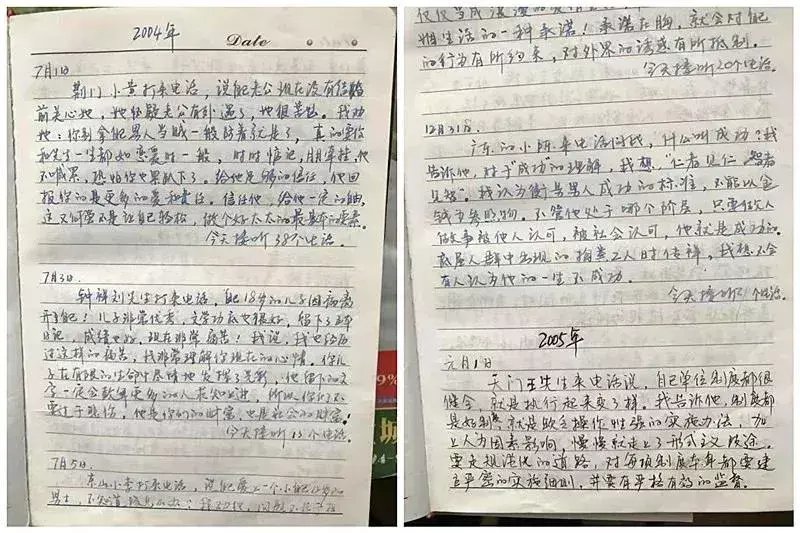 2004年
Date
7月1日
荆门小黄打来电话，说她老公现在没有结婚
前关心她，她怀疑老公有外遇了，她很苦恼。我劝
她：你别拿她男人当贼一般防着就是了，真的要你
和先生一生都如恋爱时一般，时时惦记，朋牵挂，他
不喊累，恐怕你也累趴下了。给他足够的信任，他回
报你的是更多的爱和责任。信任他，给他一定的自由，
这又何尝不是让自己轻松，做个好太太的最基本的要素。
今天接听38个电话。
7月3日
钟祥刘先生打来电话，自己18岁的儿子因病离
开自己！儿子非常优秀，文学功底也很好，留下了
日记，成绩也好，现在非常痛苦！我说，我也经历
过这样的痛苦，我非常理解你现在的心情。你儿
子在有限的生命中尽情地发挥了光彩，他留下的文
字一定会鼓舞更多的人
要过于悲伤，他是你们的财富，也是社会的财富。
今天接听13个电话
7月5日
京山小李打来电话，说她爱上一个小她12岁的
男士，不知道
仅仅当成浪漫的
惜生活的一种承诺！承诺在胸，就会对自己
的行为有所约束，对外界的诱惑有所抵制。
今天接听20个电话。
12月31日
广东的小陈来电话问我，什么叫成功？我
告诉他，对于"成功"的理解，我想，"仁者见仁，智者
见智"。我认为衡量男人成功的标准，不能以金
钱为参照物。不管他处于哪个阶层，只要做人
做事被他人认可，被社会认可，他就是成功的。
底层人群中出现的掏粪工人时传祥，我想不会
有人认为他的一生不成功。
今天接听 个电话。
2005年
元月1日
天门王先生来电话说，自己单位制度都很
健全，就是执行起来变了样。我告诉他，制度都
是好制度，就是缺乏操作性强的实施办法，加
上人为因素影响，慢慢就走上了形式主义歧途。
要走规范化的道路，对每项制度本身都要建
立严密的实施细则，并要有严格有效的监督。